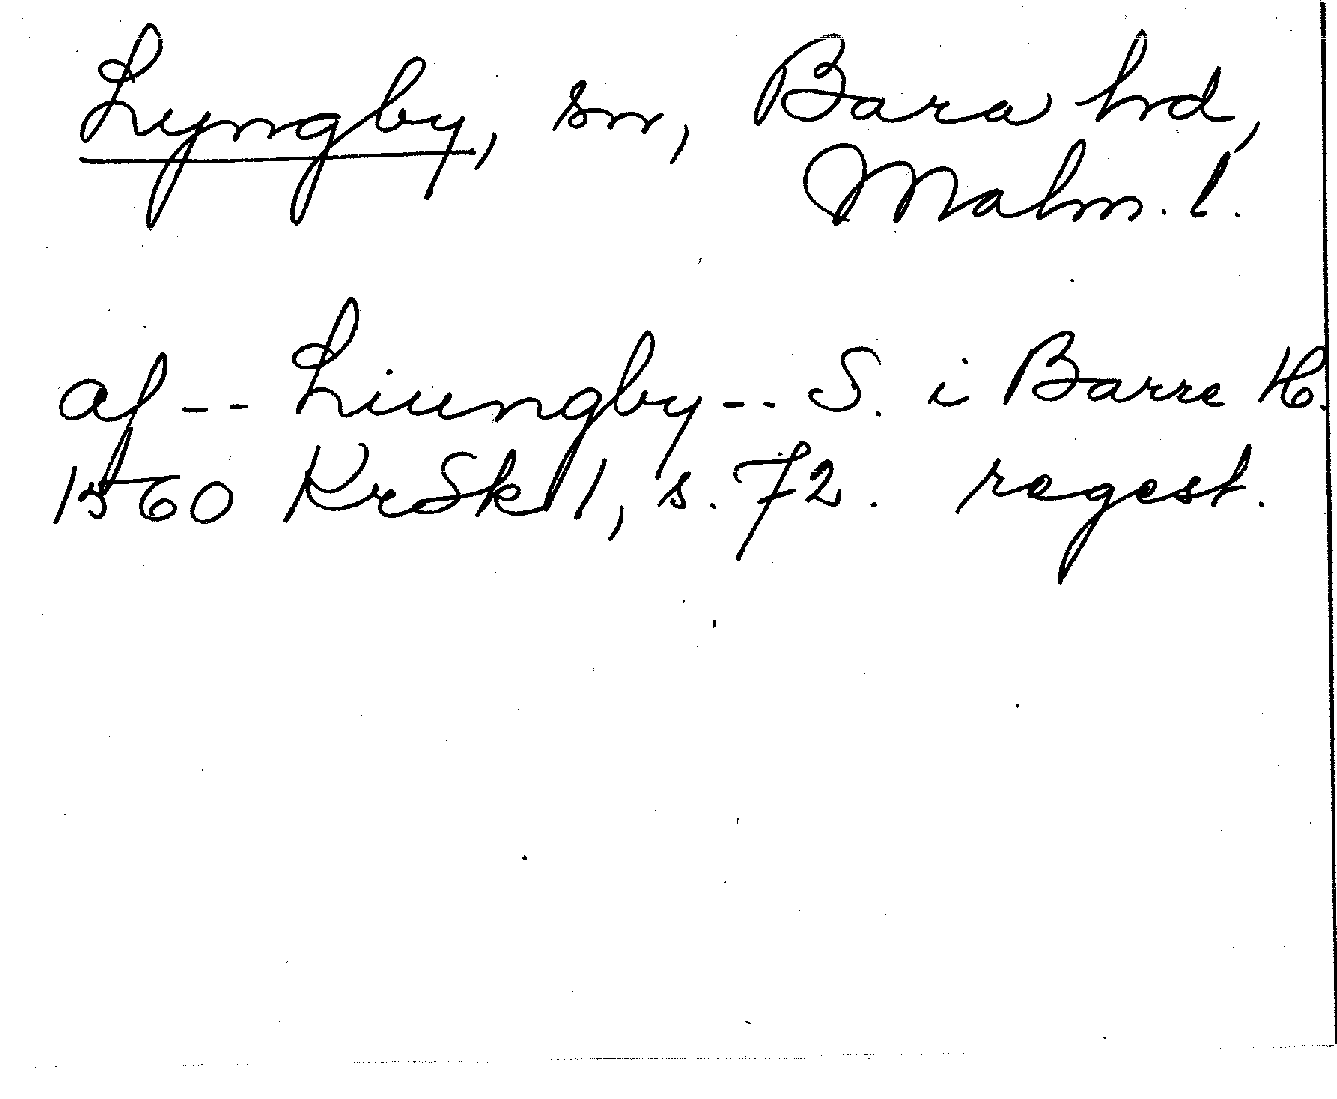 Lyngby, sn, Bara hrd,
Malm. l.
af -- Liungby -- S. i Barre H.
1560 KrSk 1, s. 72. regest.